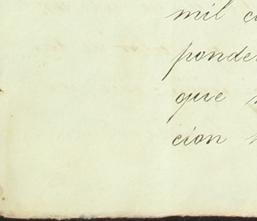 mil c
ponde
que
cion